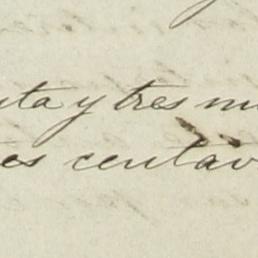 nta y tres mi
es centav